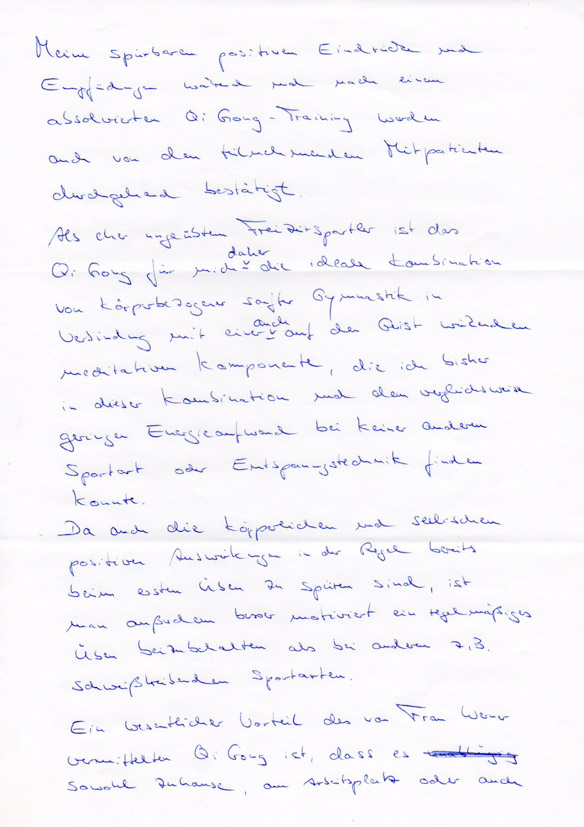 Meine spürbaren positiven Eindrücke und
Empfindungen während und nach einem
absolvierten Qi Gong-Training werden
auch von den teilnehmenden Mitpatienten
durchgehend bestätigt.
Als eher ungeübten Freizeitsportler ist das
Qi Gong für mich daher die ideale Kombination
von körperbezogener sanfter Gymnastik in
Verbindung mit einer auch auf den Geist wirkenden
meditativen Komponente, die ich bisher
in dieser Kombination und den vergleichsweise
geringen Energieaufwand bei keiner anderen
Sportart oder Entspannungstechnik finden
konnte.
Da auch die körperlichen und seelischen
positiven Auswirkungen in der Regel bereits
beim ersten Üben zu spüren sind, ist
man außerdem besser motiviert ein regelmäßiges
Üben beizubehalten als bei anderen z.B.
schweißtreibenden Sportarten.
Ein wesentlicher Vorteil des von Frau Werner
vermittelten Qi Gong ist, dass es
sowohl zuhause, am Arbeitsplatz oder auch